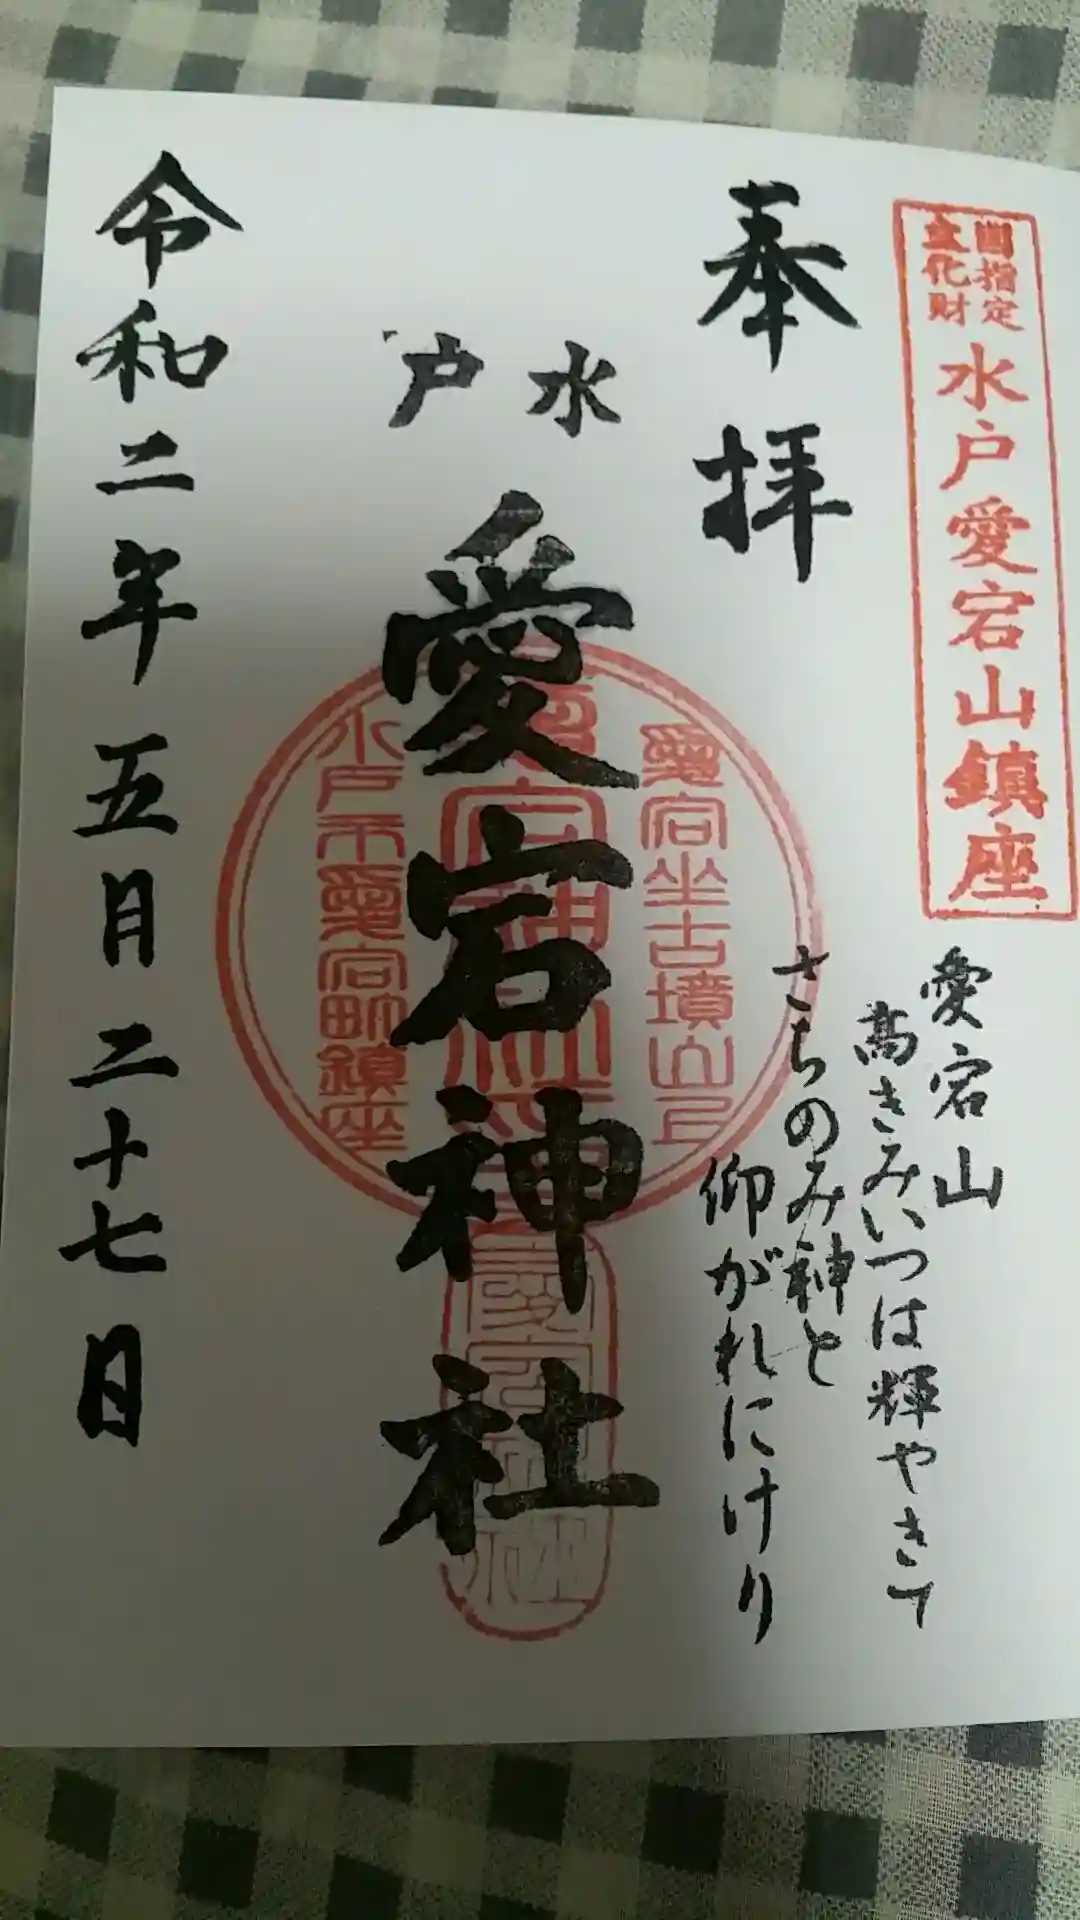 国指定
文化財
水戸愛宕山鎮座
奉拝
愛宕山
高きみいつは輝やきて
さちのみ神と
仰がれにけり
水戸
愛宕神社
愛宕坐古墳山上
水戸市愛宕町鎮座
愛宕神社
令和二年五月二十七日